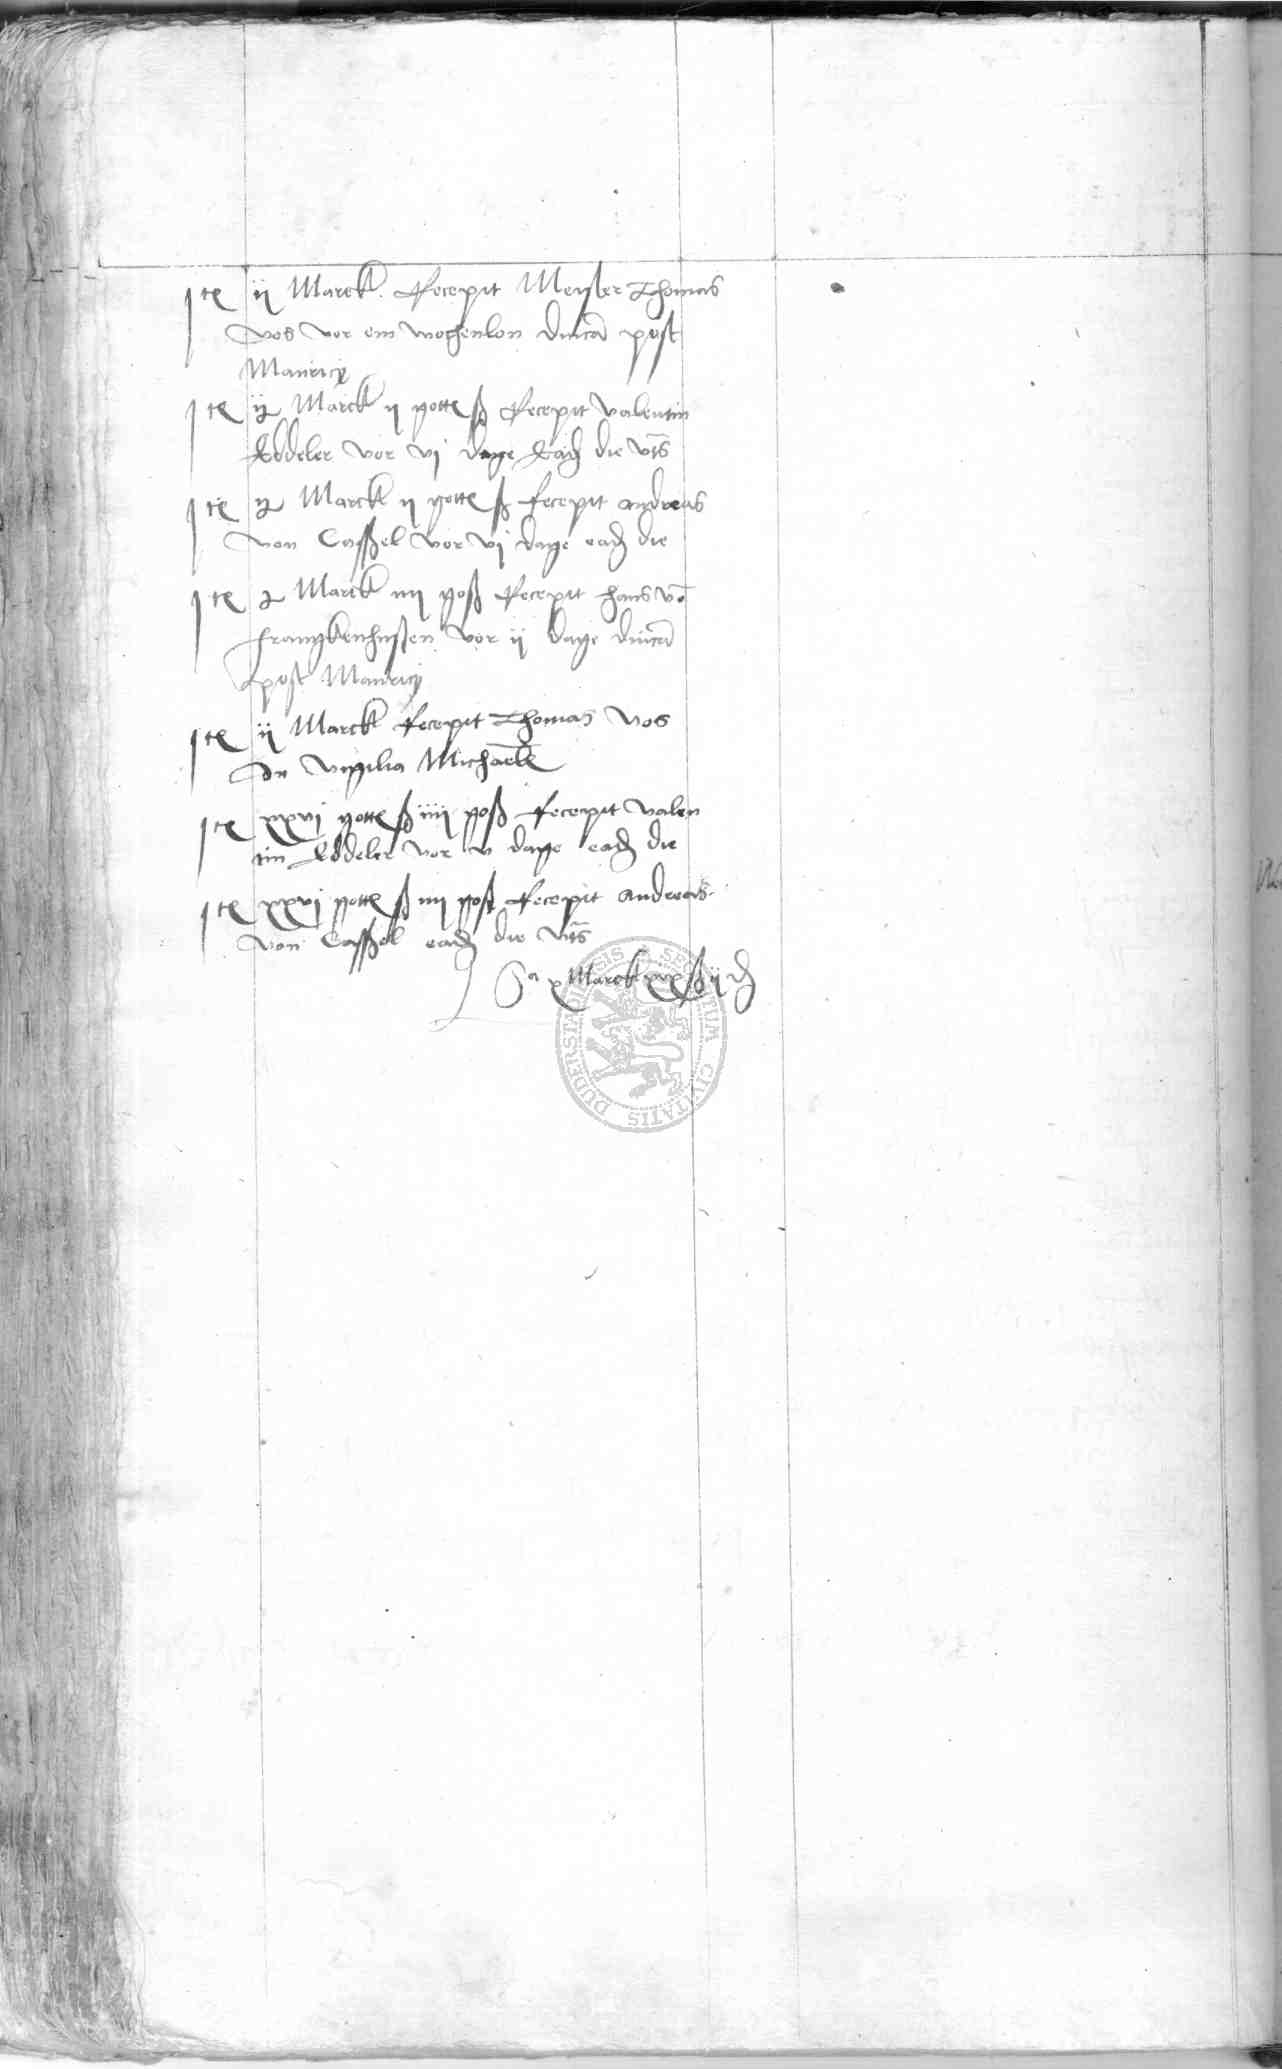 Ite ij Marck Recepit Meyster Thomas
vos vor ein wochenlon dnica post
Mauricij
Ite Marck ij gotte ß Recepit valentin
Eddeler vor vj dage Ead die vts
Ite Marck ij gotte ß Recepit andreas
von Cassel vor vj dage ead die
Ite Marck iiij goß Recepit hans vo
franckenhussen vor ij dage dnica
post Mauricij
Ite ij Marck Recepit Thomas vos
In vigilia Michael
Ite xxvj gotte ß iiij goß Recepit valen
tin Eddeler vor v dage ead die
Ite xxvj gotte ß iiij goß Recepit andreas
von Cassel ead die vts
Sa x Marck ß ij
DUDERSTADIENSIS CIVITATIS